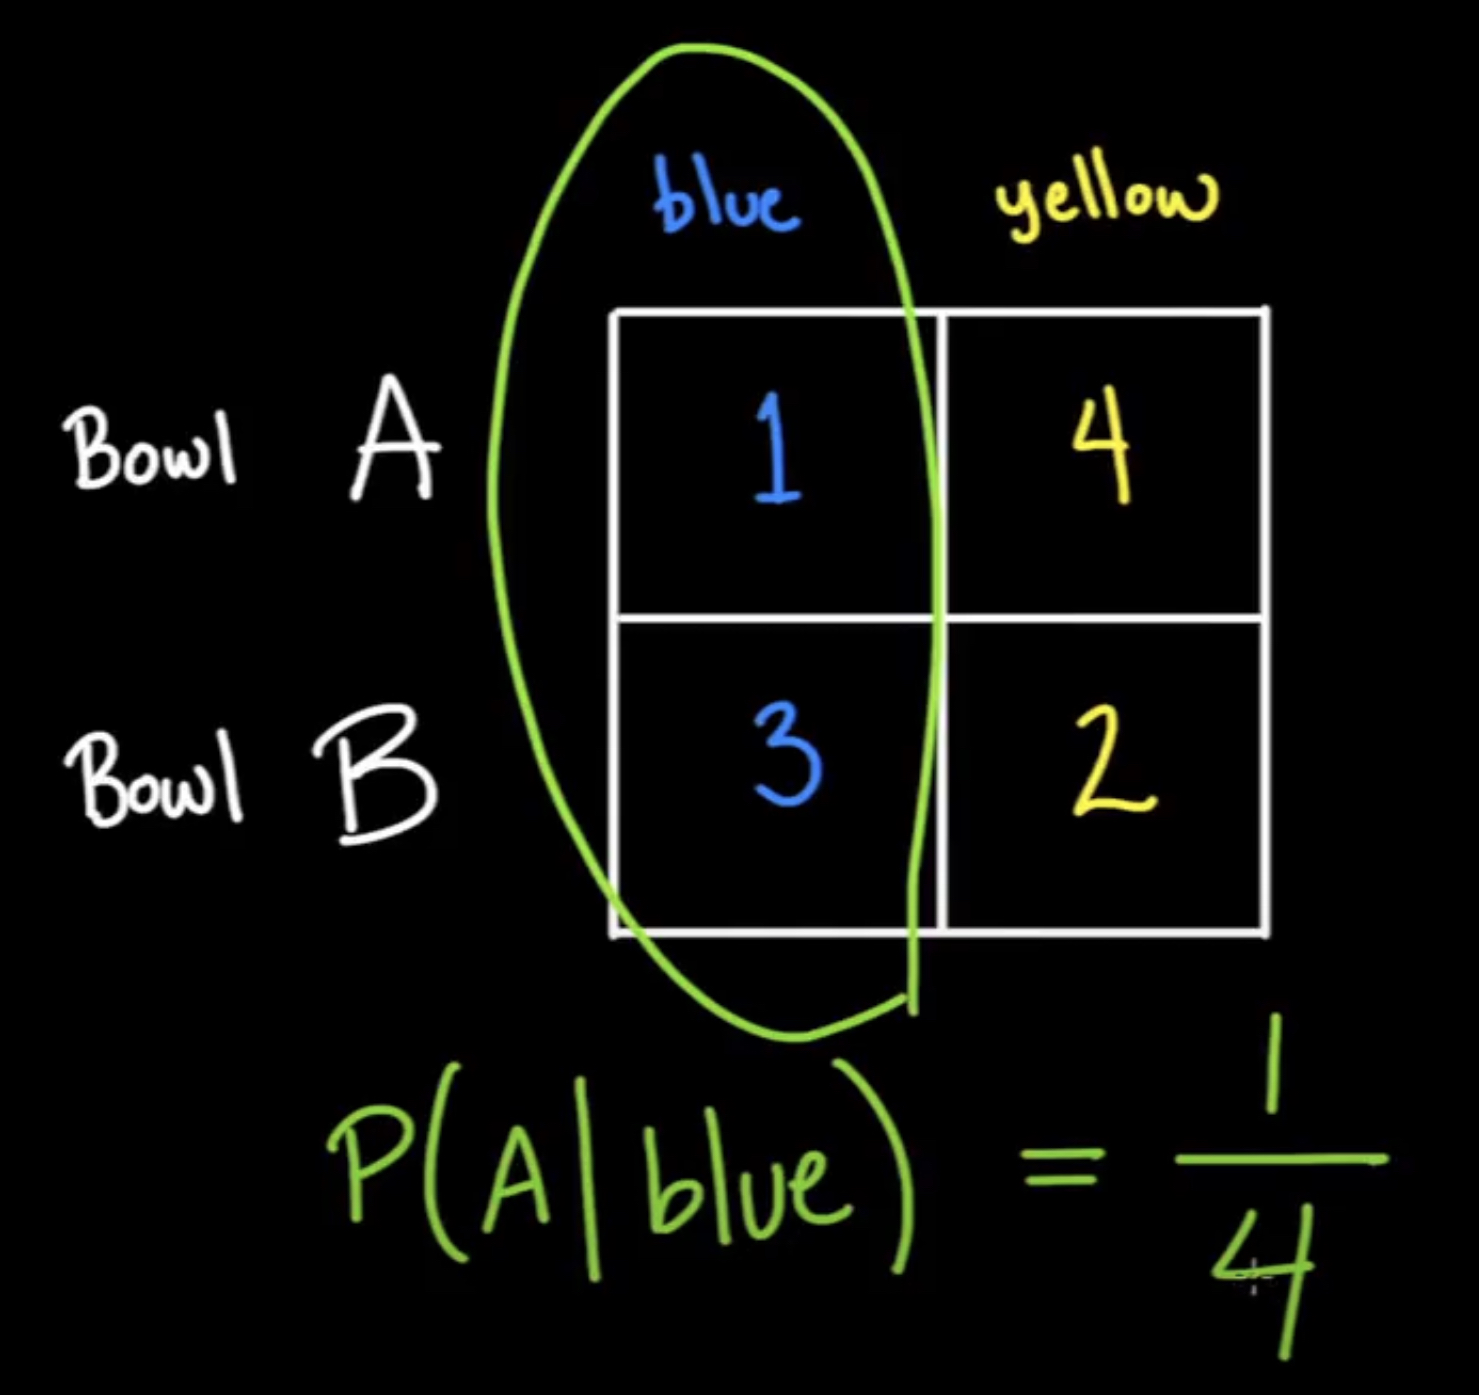 blue yellow
Bowl A 1 4
Bowl B 3 2
P(A|blue) = 1/4